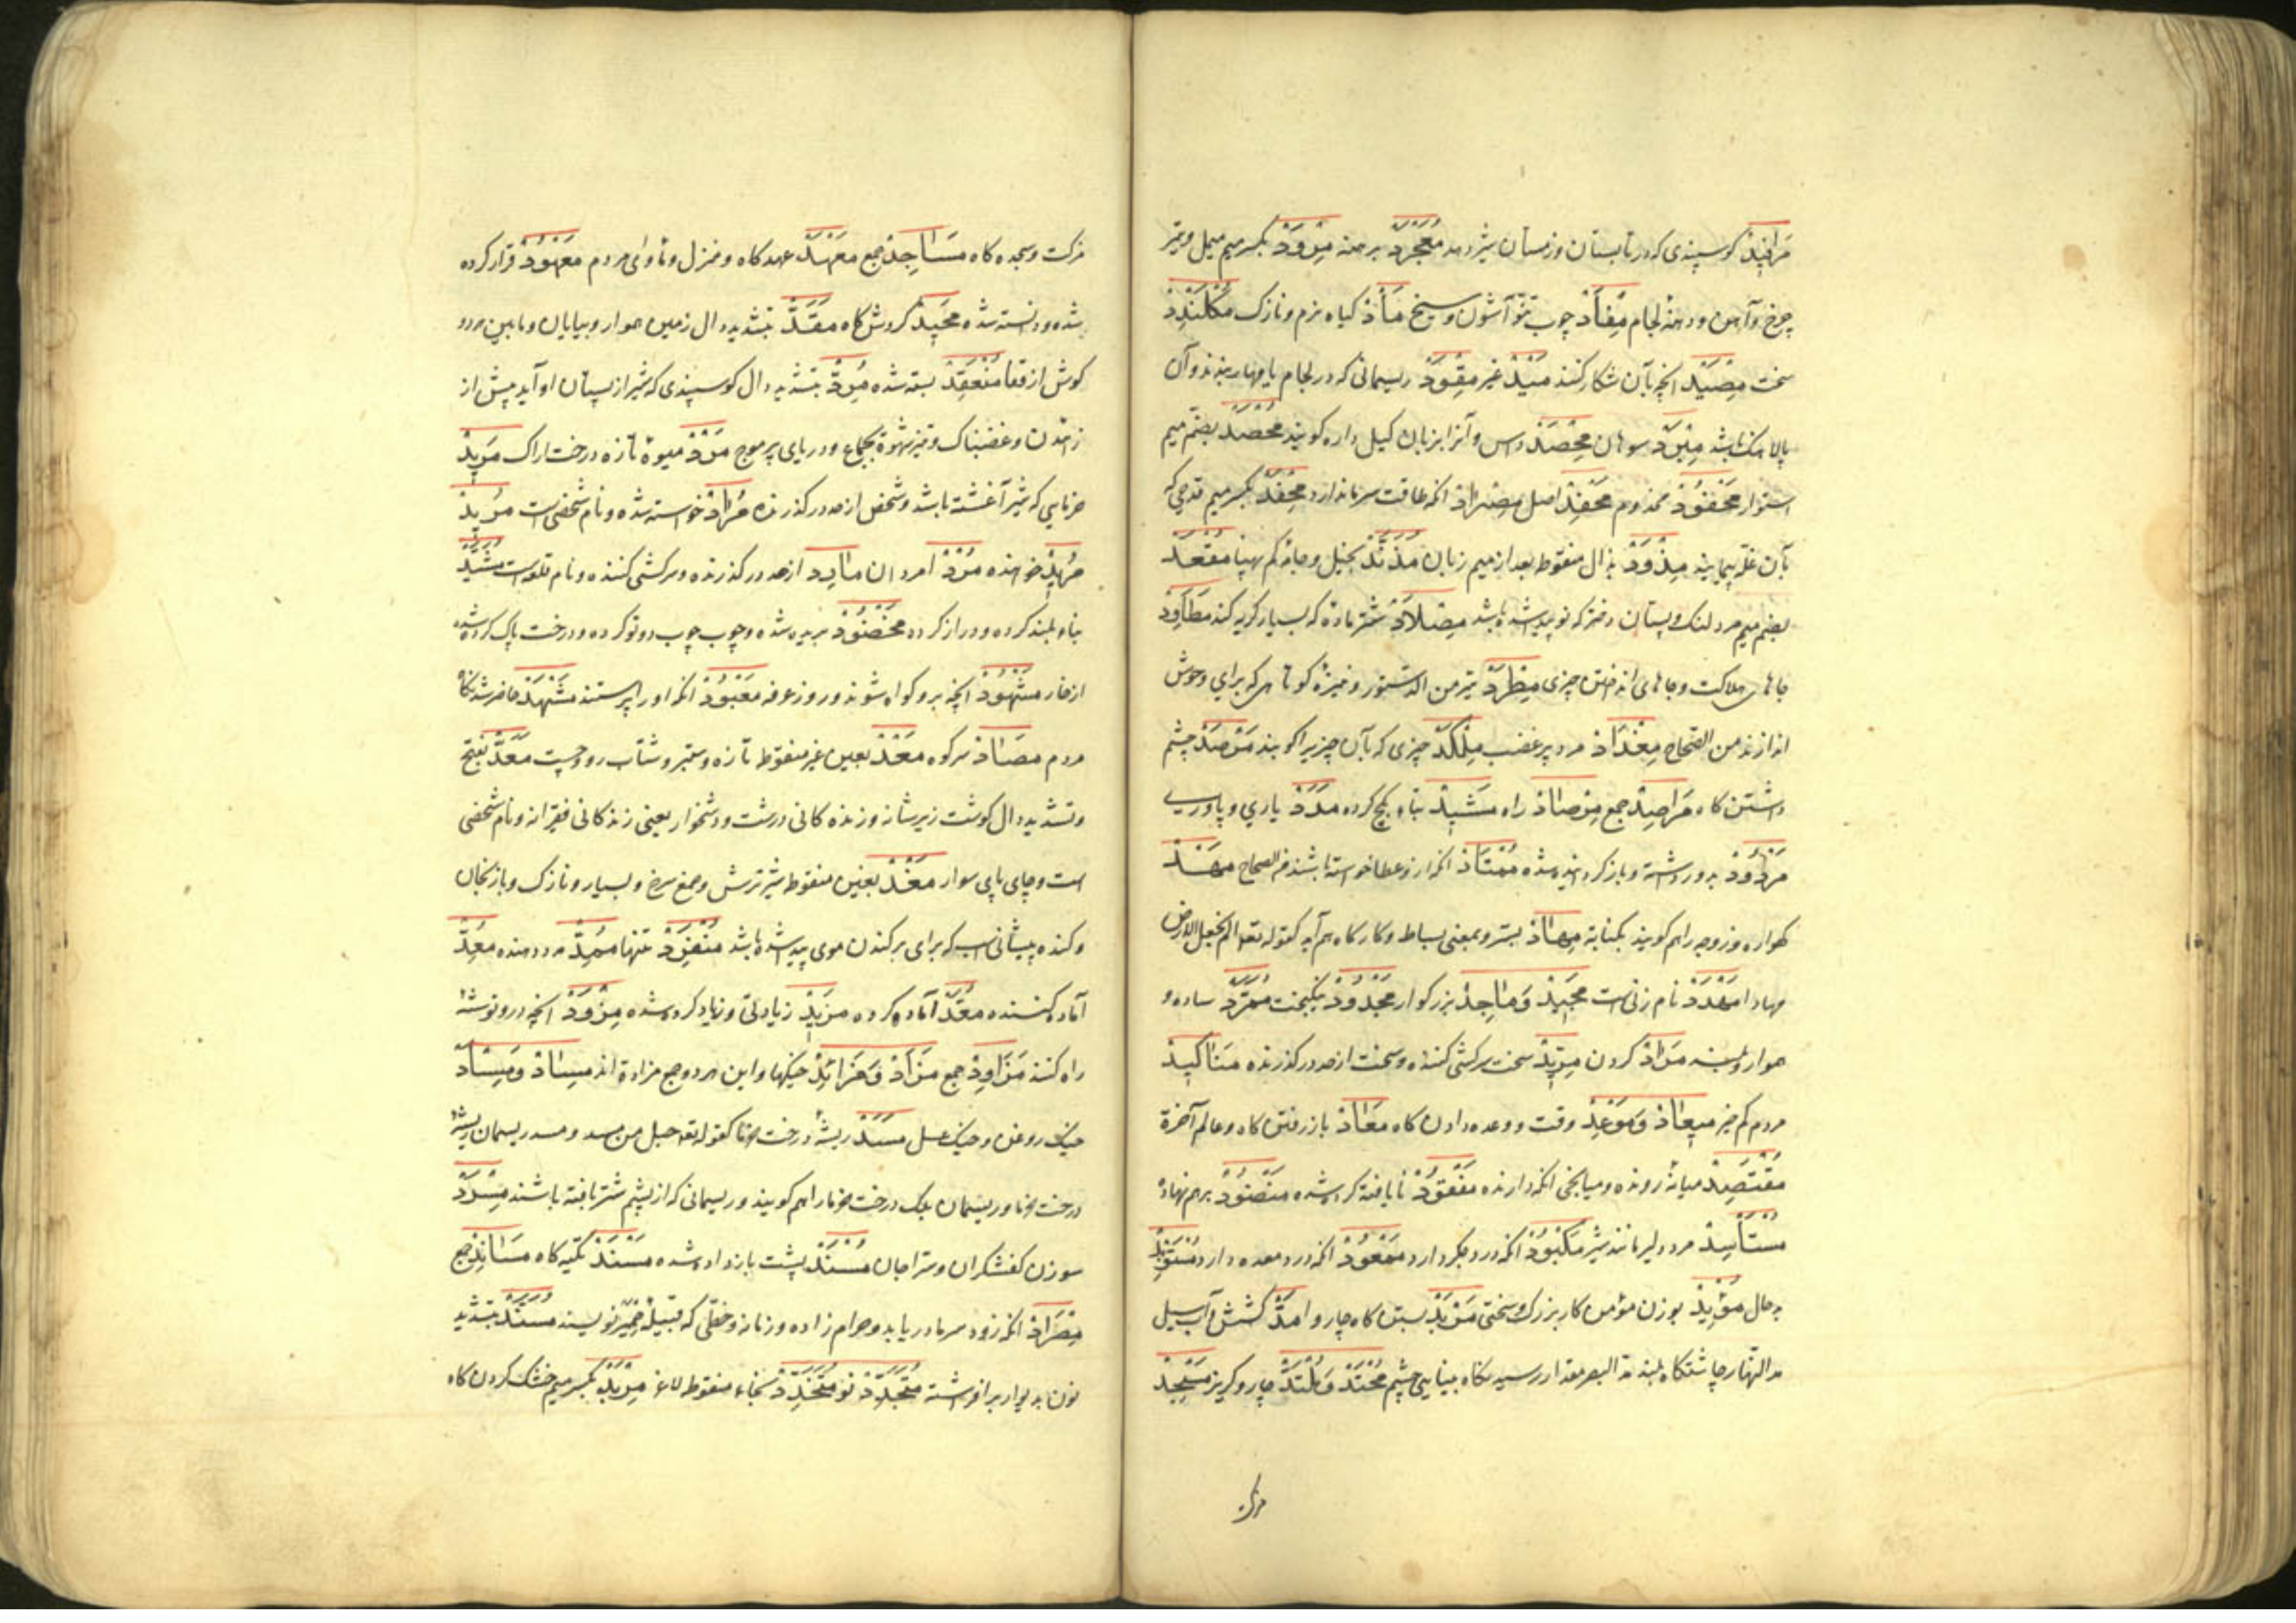 مَرافِیدْ کوسپندی که در تابستان وزمستان شیر دهد مُعَجْرَدْ برهنه مِرْوَدْ بکسر میم میل و تیر
چرخ و آهن ودهنهٔ لجام مِفْأَدْ چوب تنور آشون وسیخ مَأَدْ کیاه نرم ونازک مُکْلَنْدِدْ
سخت مِصْیَدْ انچه بآن شکار کنند مَیْدْ غیر مِقْوَدْ ریسمانی که در لجام یا مهار بندند وآن
پالاهنک باشد مِبْرَدْ سوهان مِحْصَدْ داس وآنرا بزبان کیل داره کویند مُحْصَدْ بضم میم
استوار مَحْفُودْ مخدوم مَحْفِدْ اصل مِصْرادْ انکه طاقت سرما ندارد مِحْفَدْ بکسر میم قدحی که
بآن غله پیمایند مِذْوَدْ بذال منقوط بعد از میم زبان مُزَنَّدْ بخیل وجامهٔ کم پهنا مُقْعَدْ
بضم میم مرد لنک وپستان دختر که نو پیدا شده باشد مِصْلادْ شتر ماده که بسیار کریه کند مَطاوِدْ
جاهای هلاکت وجاهای انداختن چیزی مِطْرَدْ تیر من الدستور ونیزهٔ کوتاهی که برای وحوش
اندازند من الصحاح مِغْدادْ مرد پر غضب مِلْکَدْ چیزی که بآن چیزیرا کوبند مَرْصَدْ چشم
داشتن کاه مَراصِدْ جمع مِرْصادْ راه مَشِیدْ بناء کچ کرده مَدَدْ یاری ویاوری
مَرْدُودْ بدور داشته و باز کردانیده شده مُمْتادْ انکه ازو عطا خواسته باشند فی الصحاح مَهْدْ
کهواره وزوجه را هم کویند بکنایة مِهادْ بستر و بمعنی بساط وکارکاه هم آید کقوله تعالی الم نجعل الارض
مهادا مَهْدَدْ نام زنی است مَجِیدْ وَماجِدْ بزرکوار مَجْدُودْ نیکبخت مُمَرَّدْ ساده و
هموار وبلند مَرادْ کردن مِرِّیدْ سخت سرکشی کننده وسخت از حد در کذرنده مَناکِیدْ
مردم کم خیر مِیعادْ وَمَوْعِدْ وقت ووعده دادن کاه مَعادْ باز رفتن کاه وعالم آخرة
مُقْتَصِدْ میانه رونده ومیانجی انکه دارنده مَفْقُودْ نا یافته کرده شده مَنْضُودْ برهم نهاده
مُسْتَأسِدْ مرد دلیر مانند شیر مَکْبُودْ انکه درد جکر دارد مَمْعُودْ انکه درد معده دارد مُسْتَوْبِدْ
بد حال مُؤْیِدْ بوزن مؤمن کار بزرک وسختی مَرْبَدْ بستن کاه چاروا مَدّ کشش وآب سیل
مد النهار چاشتکاه بلند مد البصر مقدار رسیدن نکاه بینایی چشم مُحْتَدّ وَمُلْتَدّ چاره وکریز مَسْجِدْ
مزکت
مزکت وسجده کاه مَساجِدْ جمع مَعْهَدْ عهد کاه ومنزل وماوای مردم مَعْهُودْ قرار کرده
شده ودانسته شده مَحِیدْ کردش کاه مَقَدّ بتشدید دال زمین هموار وبیابان ومابین هر دو
کوش از قفا مُنْعَقِدْ بسته شده مُرِدّ بتشدید دال کوسپندی که شیر از پستان او آید پیش از
زائیدن وغضبناک وتیز شهوة بجماع ودریای پر موج مَرْدْ میوهٔ تازه درخت اراک مَرِیدْ
خرمایی که بشیر آغشته باشد وشخص از حد در کذرنده مُرادْ خواسته شده ونام شخصی است مُرِیدْ
خواهنده مُرْدْ امردان مارِد از حد در کذرنده وسرکشی کننده ونام قلعه است مُشَیَّدْ
بناء بلند کرده ودراز کرده مَخْضُودْ بریده شده وچوب چوب دو تو کرده ودرخت پاک کرده شده
از خار مَشْهُودْ انچه برو کواه شوند وروز عرفه مَعْبُودْ انکه او را پرستند مَشْهَدْ حاضر شدنکاه
مردم مَصادْ سر کوه مَعْدْ بعین غیر منقوط تازه وستبر وشتاب رو وچست مَعَدّ بفتح
وتشدید دال کوشت زیر شانه وزنده کانی درشت ودشخوار یعنی زندکانی فقیرانه ونام شخصی
است وجای پای سوار مَغْدْ بغین منقوط شیر ترش وصمغ سرخ وبسیار ونازک وبادنجان
وکنده پیشانی اسب که برای برکندن موی پیدا شده باشد مُنْفَرِدْ تنها مُمِدّ مدد دهنده مُعِدّ
آماده کننده مُعَدّ آماده کرده مَزِیدْ زیادتی وزیاد کرده شده مِزْوَدْ انچه درو توشهٔ
راه کنند مَزاوِدْ جمع مَزادْ وَمَزائِدْ خیکها واین هر دو جمع مزادة اند مِسادْ وَمِسْأدْ
خیک روغن وخیک عسل مَسَدْ ریشهٔ درخت خرما کقوله تعه حبل من مسد ومسد ریسمان ریشهٔ
درخت خرما وریسمان برک درخت خرما را هم کویند وریسمانی که از پشم شتر بافته باشند مِسْرَدْ
سوزن کفشکران وسراجان مُسْنَدْ پشت باز داده شده مَسْنَدْ تکیه کاه مَسانِدْ جمع
مِصْرادْ انکه زود سرما دریابد وحرام زاده وزمانه وخطی که قبیلهٔ حمیر نویسند مُسَنَّدْ بتشدید
نون بدیوار بر افراشته مُتَجَدِّدْ نو مُتَخَدِّدْ بخاء منقوط لاغر مِرْبَدْ بکسر میم خشک کردن کاه